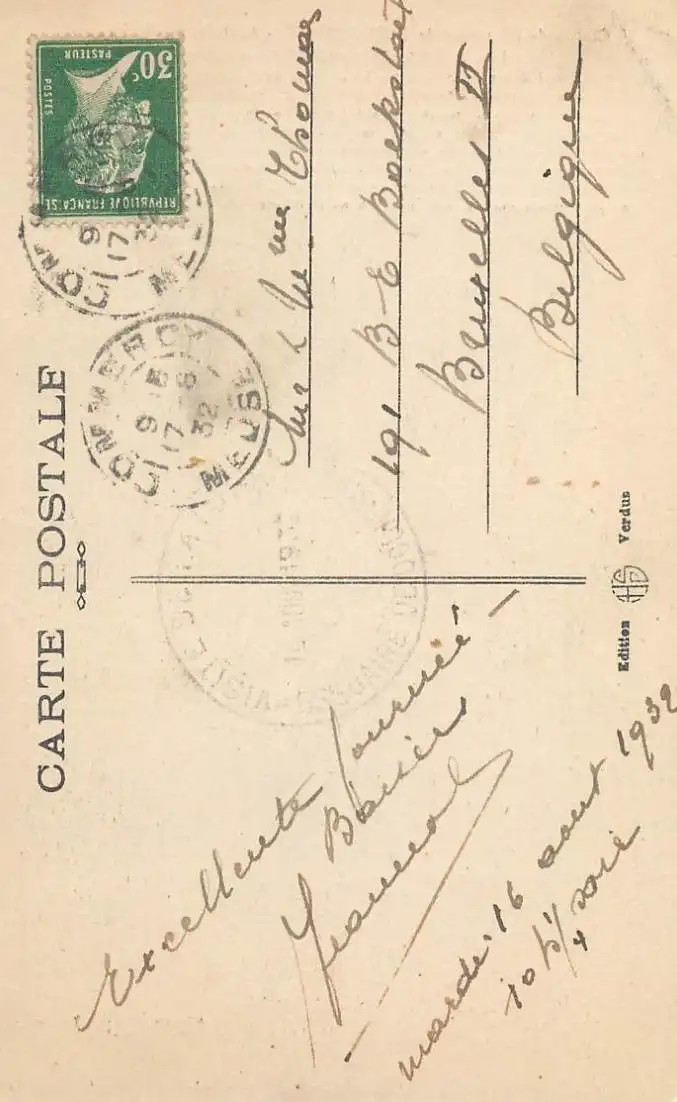 CARTE POSTALE
REPVBLIQVE FRANÇAISE
POSTES
PASTEUR
30c
COMMERCY
9
17
32
MEUSE
COMMERCY
9 15
17 - 8
32
MEUSE
Mr & Me Thomas
191 B E Bockstael
Bruxelles II
Belgique
VISITE
Excellente journée
Baisers
mardi 16 aout 1932
10 h 1/4 soir
Edition HS Verdun